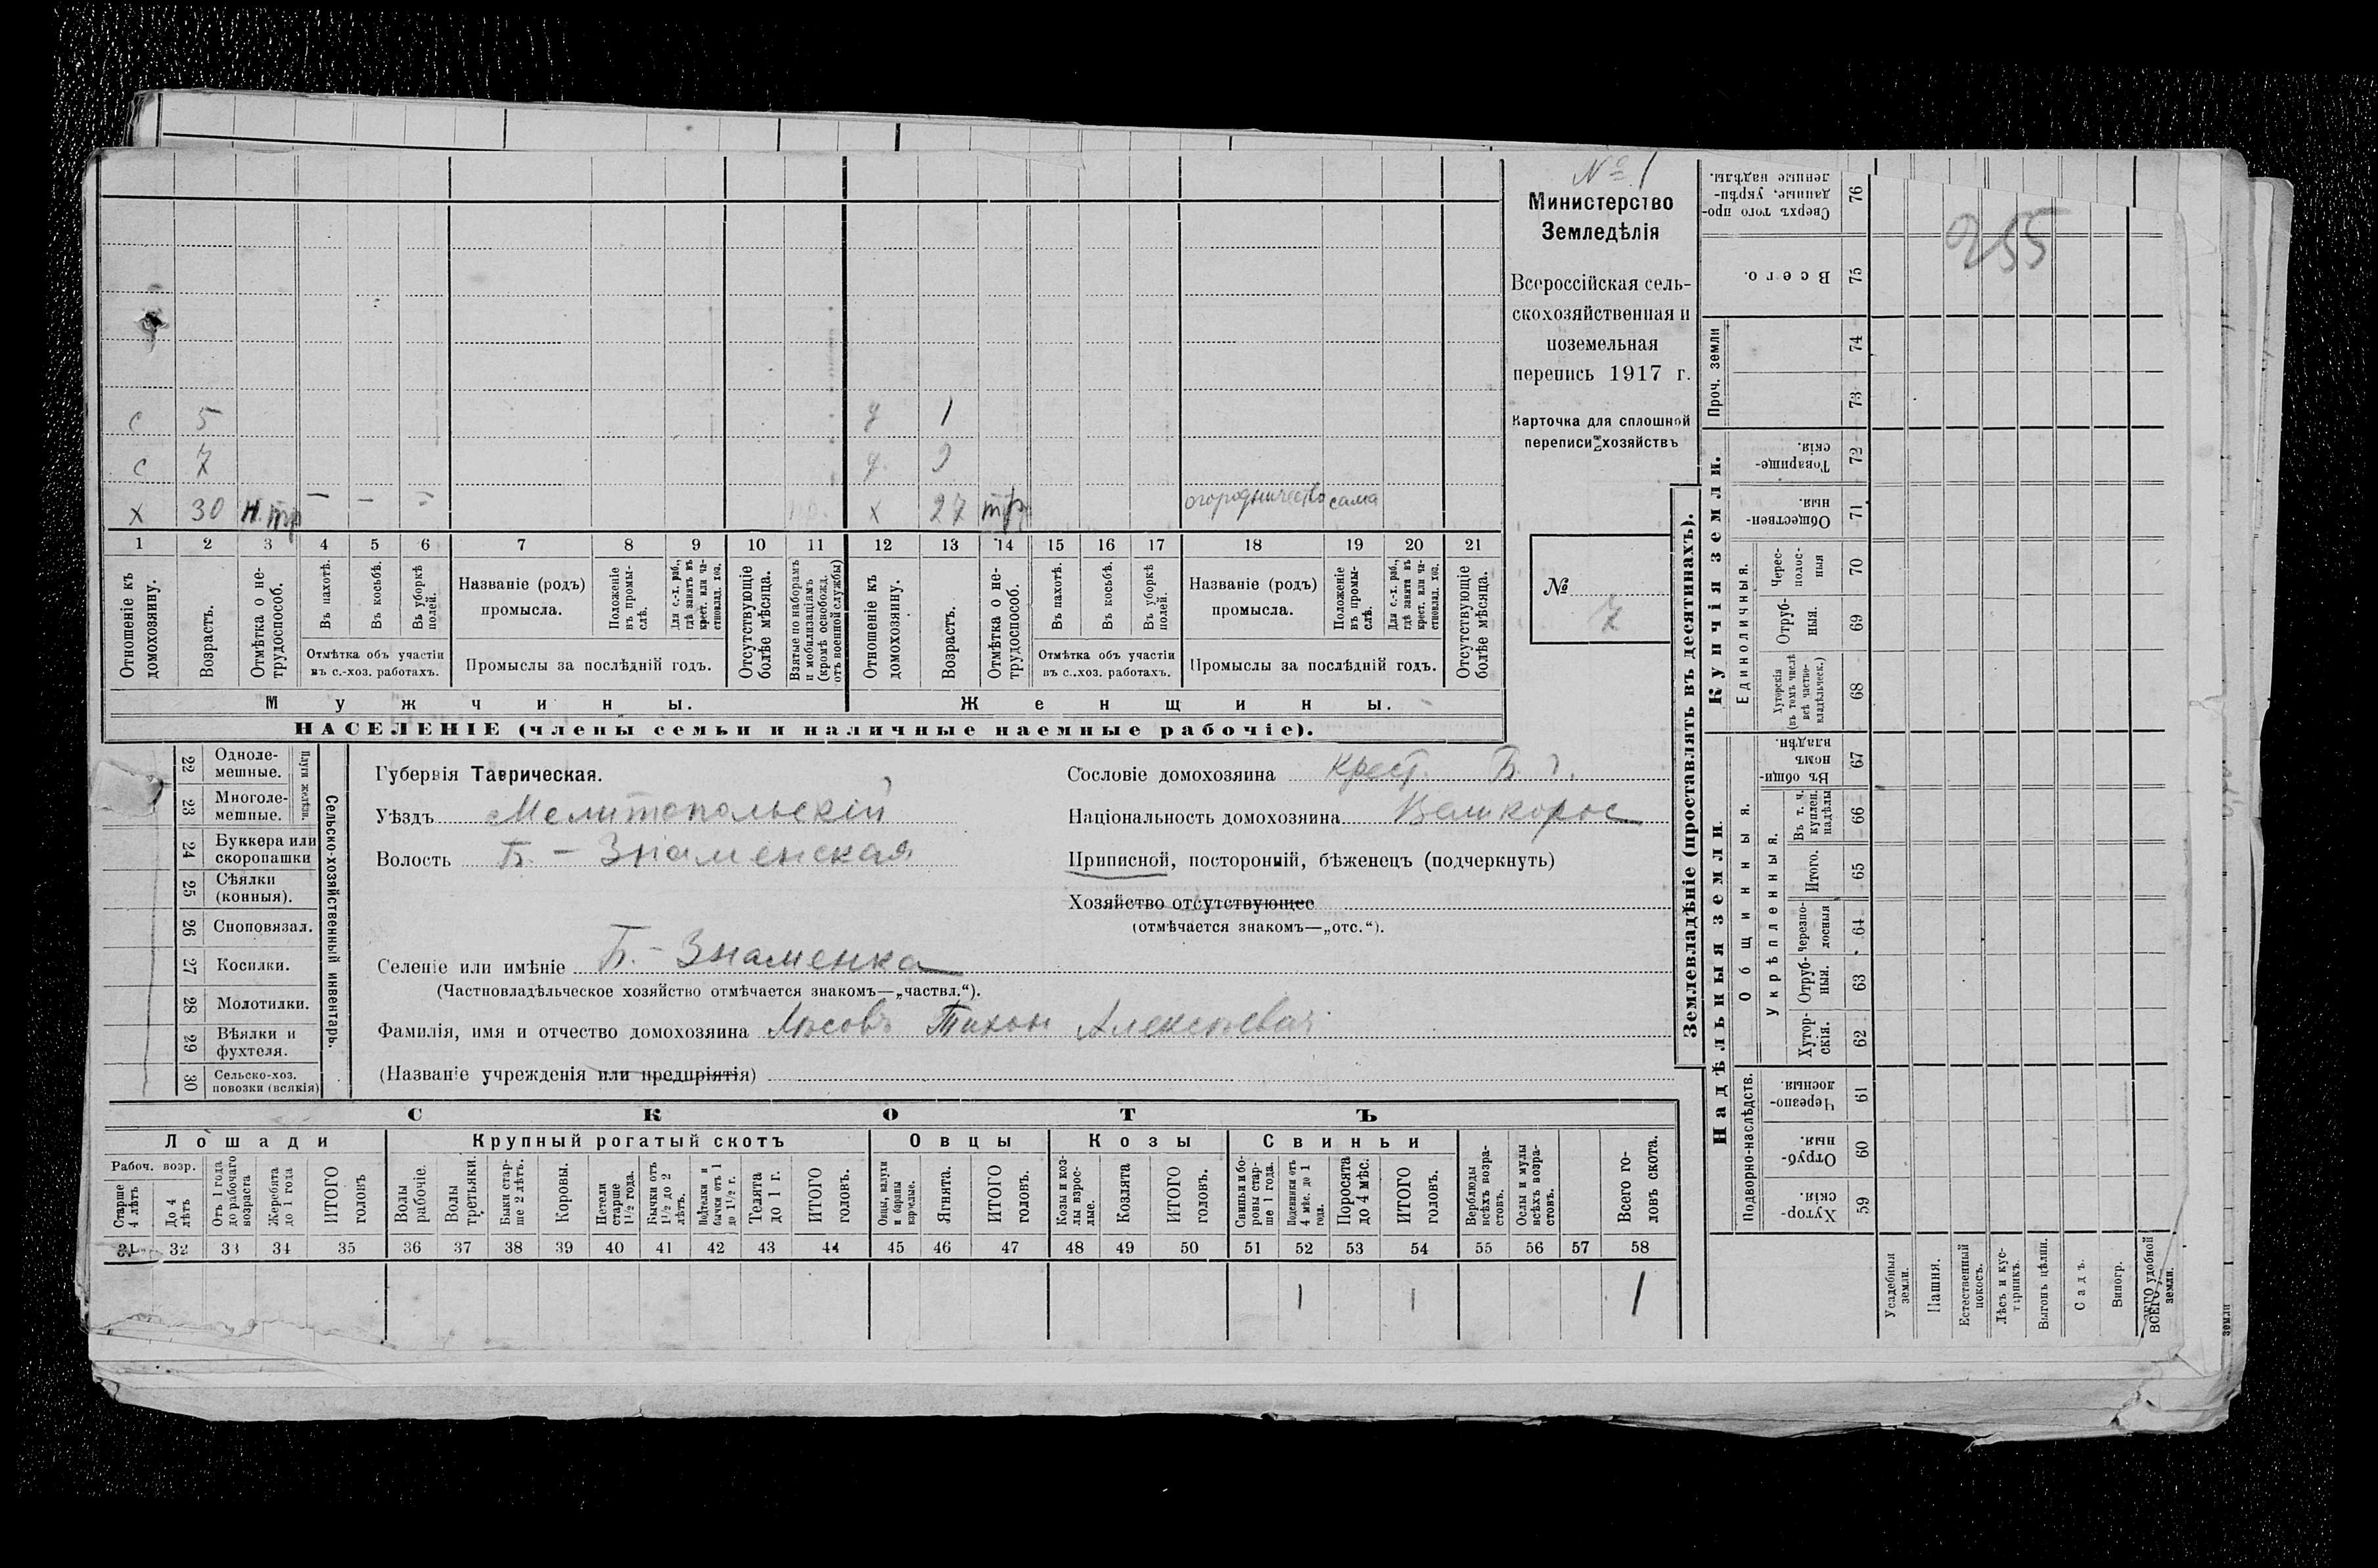 № 1
Министерство
Земледѣлія
Всероссійская сель-
скохозяйственная и
поземельная
перепись 1917 г.
Карточка для сплошной
переписи хозяйствъ
№
7
255
с 5 д 1
с 7 д.
х 30 н.тр — — — х 27 тр огородничество сама
1 2 3 4 5 6 7 8 9 10 11 12 13 14 15 16 17 18 19 20 21
Отношеніе къ домохозяину.
Возрастъ.
Отмѣтка о не-трудоспособ.
Въ пахотѣ.
Въ косьбѣ.
Въ уборкѣ полей.
Отмѣтка объ участіи
въ с.-хоз. работахъ.
Названіе (родъ)
промысла.
Положеніе въ промы-слѣ.
Для с.-х. раб., гдѣ занятъ въ крест. или ча-стновлад. хоз.
Промыслы за послѣдній годъ.
Отсутствующіе болѣе мѣсяца.
Взятые по наборамъ и мобилизаціямъ (кромѣ освобожд. отъ военной службы)
Отношеніе къ домохозяину.
Возрастъ.
Отмѣтка о не-трудоспособ.
Въ пахотѣ.
Въ косьбѣ.
Въ уборкѣ полей.
Отмѣтка объ участіи
въ с.-хоз. работахъ.
Названіе (родъ)
промысла.
Положеніе въ промы-слѣ.
Для с.-х. раб., гдѣ занята въ крест. или ча-стновлад. хоз.
Промыслы за послѣдній годъ.
Отсутствующіе болѣе мѣсяца.
Мужчины.
Женщины.
НАСЕЛЕНІЕ (члены семьи и наличные наемные рабочіе).
22 Одноле-мешные.
23 Многоле-мешные.
Плуги желѣзн.
24 Буккера или скоропашки
25 Сѣялки (конныя).
26 Сноповязал.
27 Косилки.
28 Молотилки.
29 Вѣялки и фухтеля.
30 Сельско-хоз. повозки (всякія)
Сельско-хозяйственный инвентарь.
Губернія Таврическая.
Уѣздъ Мелитопольскій
Волость Б.-Знаменская
Селеніе или имѣніе Б.-Знаменка
(Частновладѣльческое хозяйство отмѣчается знакомъ—„частвл.“).
Фамилія, имя и отчество домохозяина Лосовъ Тихон Алексѣевич
(Названіе учрежденія или предпріятія)
Сословіе домохозяина Крест.
Національность домохозяина Великорос
Приписной, посторонній, бѣженецъ (подчеркнуть)
Хозяйство отсутствующее
(отмѣчается знакомъ—„отс.“).
СКОТЪ
Лошади
Крупный рогатый скотъ
Овцы
Козы
Свиньи
Рабоч. возр.
Старше 4 лѣтъ
До 4 лѣтъ
Отъ 1 года до рабочаго возраста
Жеребята до 1 года
ИТОГО головъ
Волы рабочіе.
Волы третьяки.
Быки стар-ше 2 лѣтъ.
Коровы.
Нетели старше 1½ года.
Бычки отъ 1½ до 2 лѣтъ.
Подтелки и бычки отъ 1 до 1½ г.
Телята до 1 г.
ИТОГО головъ.
Овцы, валухи и бараны взрослые.
Ягнята.
ИТОГО головъ.
Козы и коз-лы взрос-лые.
Козлята
ИТОГО головъ.
Свиньи и бо-ровы стар-ше 1 года.
Подсвинки отъ 4 мѣс. до 1 года.
Поросята до 4 мѣс.
ИТОГО головъ.
Верблюды всѣхъ возра-стовъ.
Ослы и мулы всѣхъ возра-стовъ.
Всего го-ловъ скота.
31 32 33 34 35 36 37 38 39 40 41 42 43 44 45 46 47 48 49 50 51 52 53 54 55 56 57 58
1 1 1
Землевладѣніе (проставлять въ десятинахъ).
Надѣльныя земли
Купчія земли.
Проч. земли
Подворно-наслѣдств.
Общинныя.
Укрѣпленныя.
Единоличныя.
Сверхъ того про-данные, укрѣп-ленные надѣлы. 76
Всего. 75
74
73
Товарище-скія. 72
Обществен-ныя. 71
Черес-полос-ныя 70
Отруб-ныя. 69
Хуторскія (въ томъ числѣ всѣ частно-владѣльческ.) 68
Въ общи-номъ владѣн. 67
Въ т. ч. куплен. надѣлы 66
Итого. 65
Черезпо-лосныя 64
Отруб-ныя. 63
Хутор-скія. 62
Черезпо-лосныя. 61
Отруб-ныя. 60
Хутор-скія. 59
Усадебныя земли.
Пашня.
Естественный покосъ.
Лѣсъ и кус-тарникъ.
Выгонъ цѣлин.
Садъ.
Виногр.
ВСЕГО удобной земли.